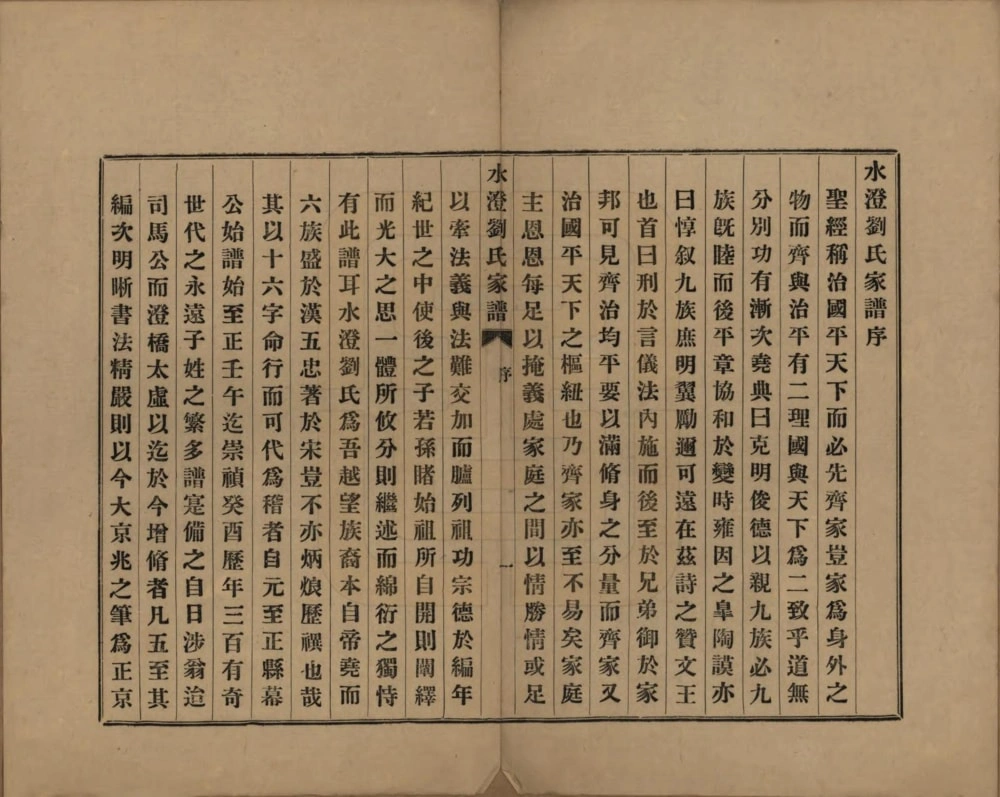 水澄劉氏家譜序
聖經稱治國平天下而必先齊家豈家爲身外之
物而齊與治平有二理國與天下爲二致乎道無
分別功有漸次堯典曰克明俊德以親九族必九
族旣睦而後平章協和於變時雍因之臯陶謨亦
曰惇叙九族庶明翼勵邇可遠在茲詩之贊文王
也首曰刑於言儀法內施而後至於兄弟御於家
邦可見齊治均平要以滿脩身之分量而齊家又
治國平天下之樞紐也乃齊家亦至不易矣家庭
主恩恩每足以掩義處家庭之間以情勝情或足
水澄劉氏家譜 序 一
以牽法義與法難交加而臚列祖功宗德於編年
紀世之中使後之子若孫睹始祖所自開則闡繹
而光大之思一體所攸分則繼述而綿衍之獨恃
有此譜耳水澄劉氏爲吾越望族裔本自帝堯而
六族盛於漢五忠著於宋豈不亦炳烺歷禩也哉
其以十六字命行而可代爲稽者自元至正縣幕
公始譜始至正壬午迄崇禎癸酉歷年三百有奇
世代之永遠子姓之繁多譜寔備之自日涉翁造
司馬公而澄橋太虛以迄於今增脩者凡五至其
編次明晰書法精嚴則以今大京兆之筆爲正京